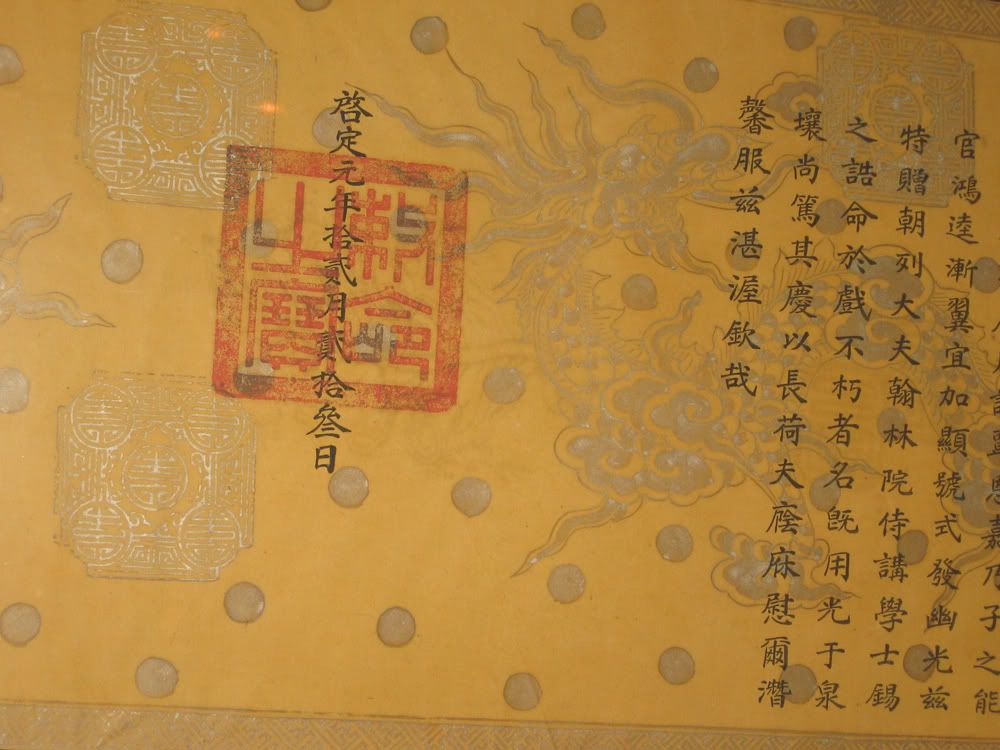 嘉乃子之能
官鴻逵漸翼宜加顯號式發幽光茲
特贈朝列大夫翰林院侍講學士錫
之誥命於戲不朽者名旣用光于泉
壤尚篤其慶以長荷夫廕庥慰爾潛
馨服茲湛渥欽哉
啓定元年拾貳月貳拾叄日
敕命
之寶